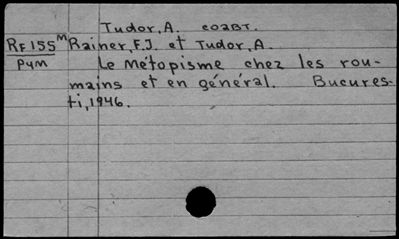 Tudor, A. соавт.
RF 155 M Rainer, F.J. et Tudor, A.
Рум Le métopisme chez les rou-
mains et en général. Bucures-
ti, 1946.